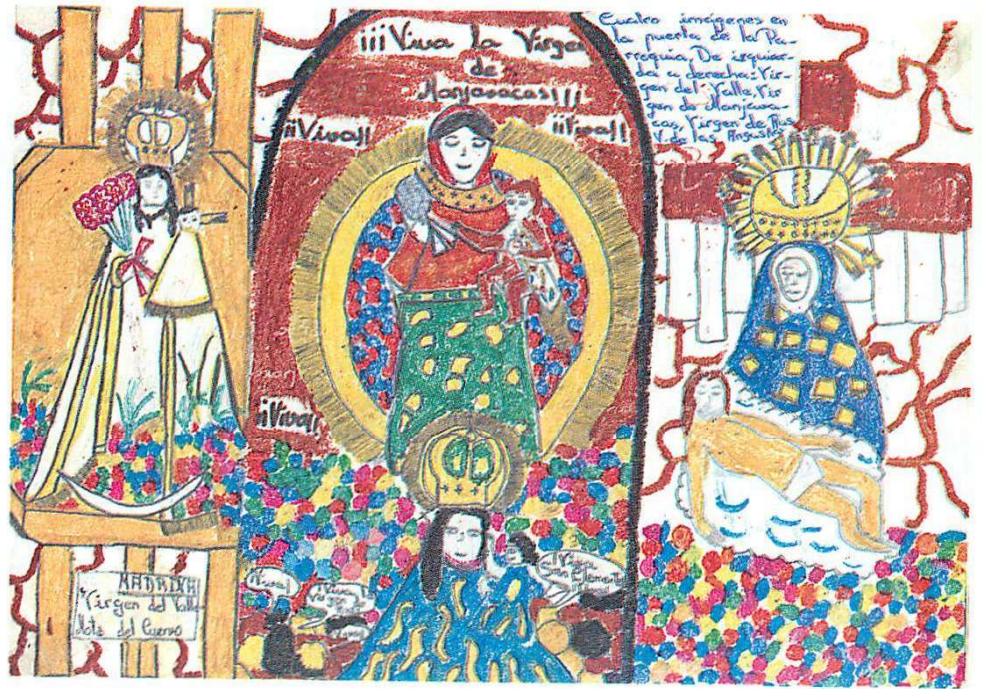 ¡¡¡Viva la Virgen
de
Manjavacas!!!
¡¡Viva!!
¡¡Viva!!
¡Viva!!
Cuatro imágenes en
la puerta de la Pa-
rroquia. De izquier-
da a derecha: Vir-
gen del Valle, Vir
gen de Manjava-
cas, Virgen de Rus
y de las Angustias
MADRINA
Virgen del Valle
Mota del Cuervo
¡Viva!
¡Viva
¡Viva
San Clemente